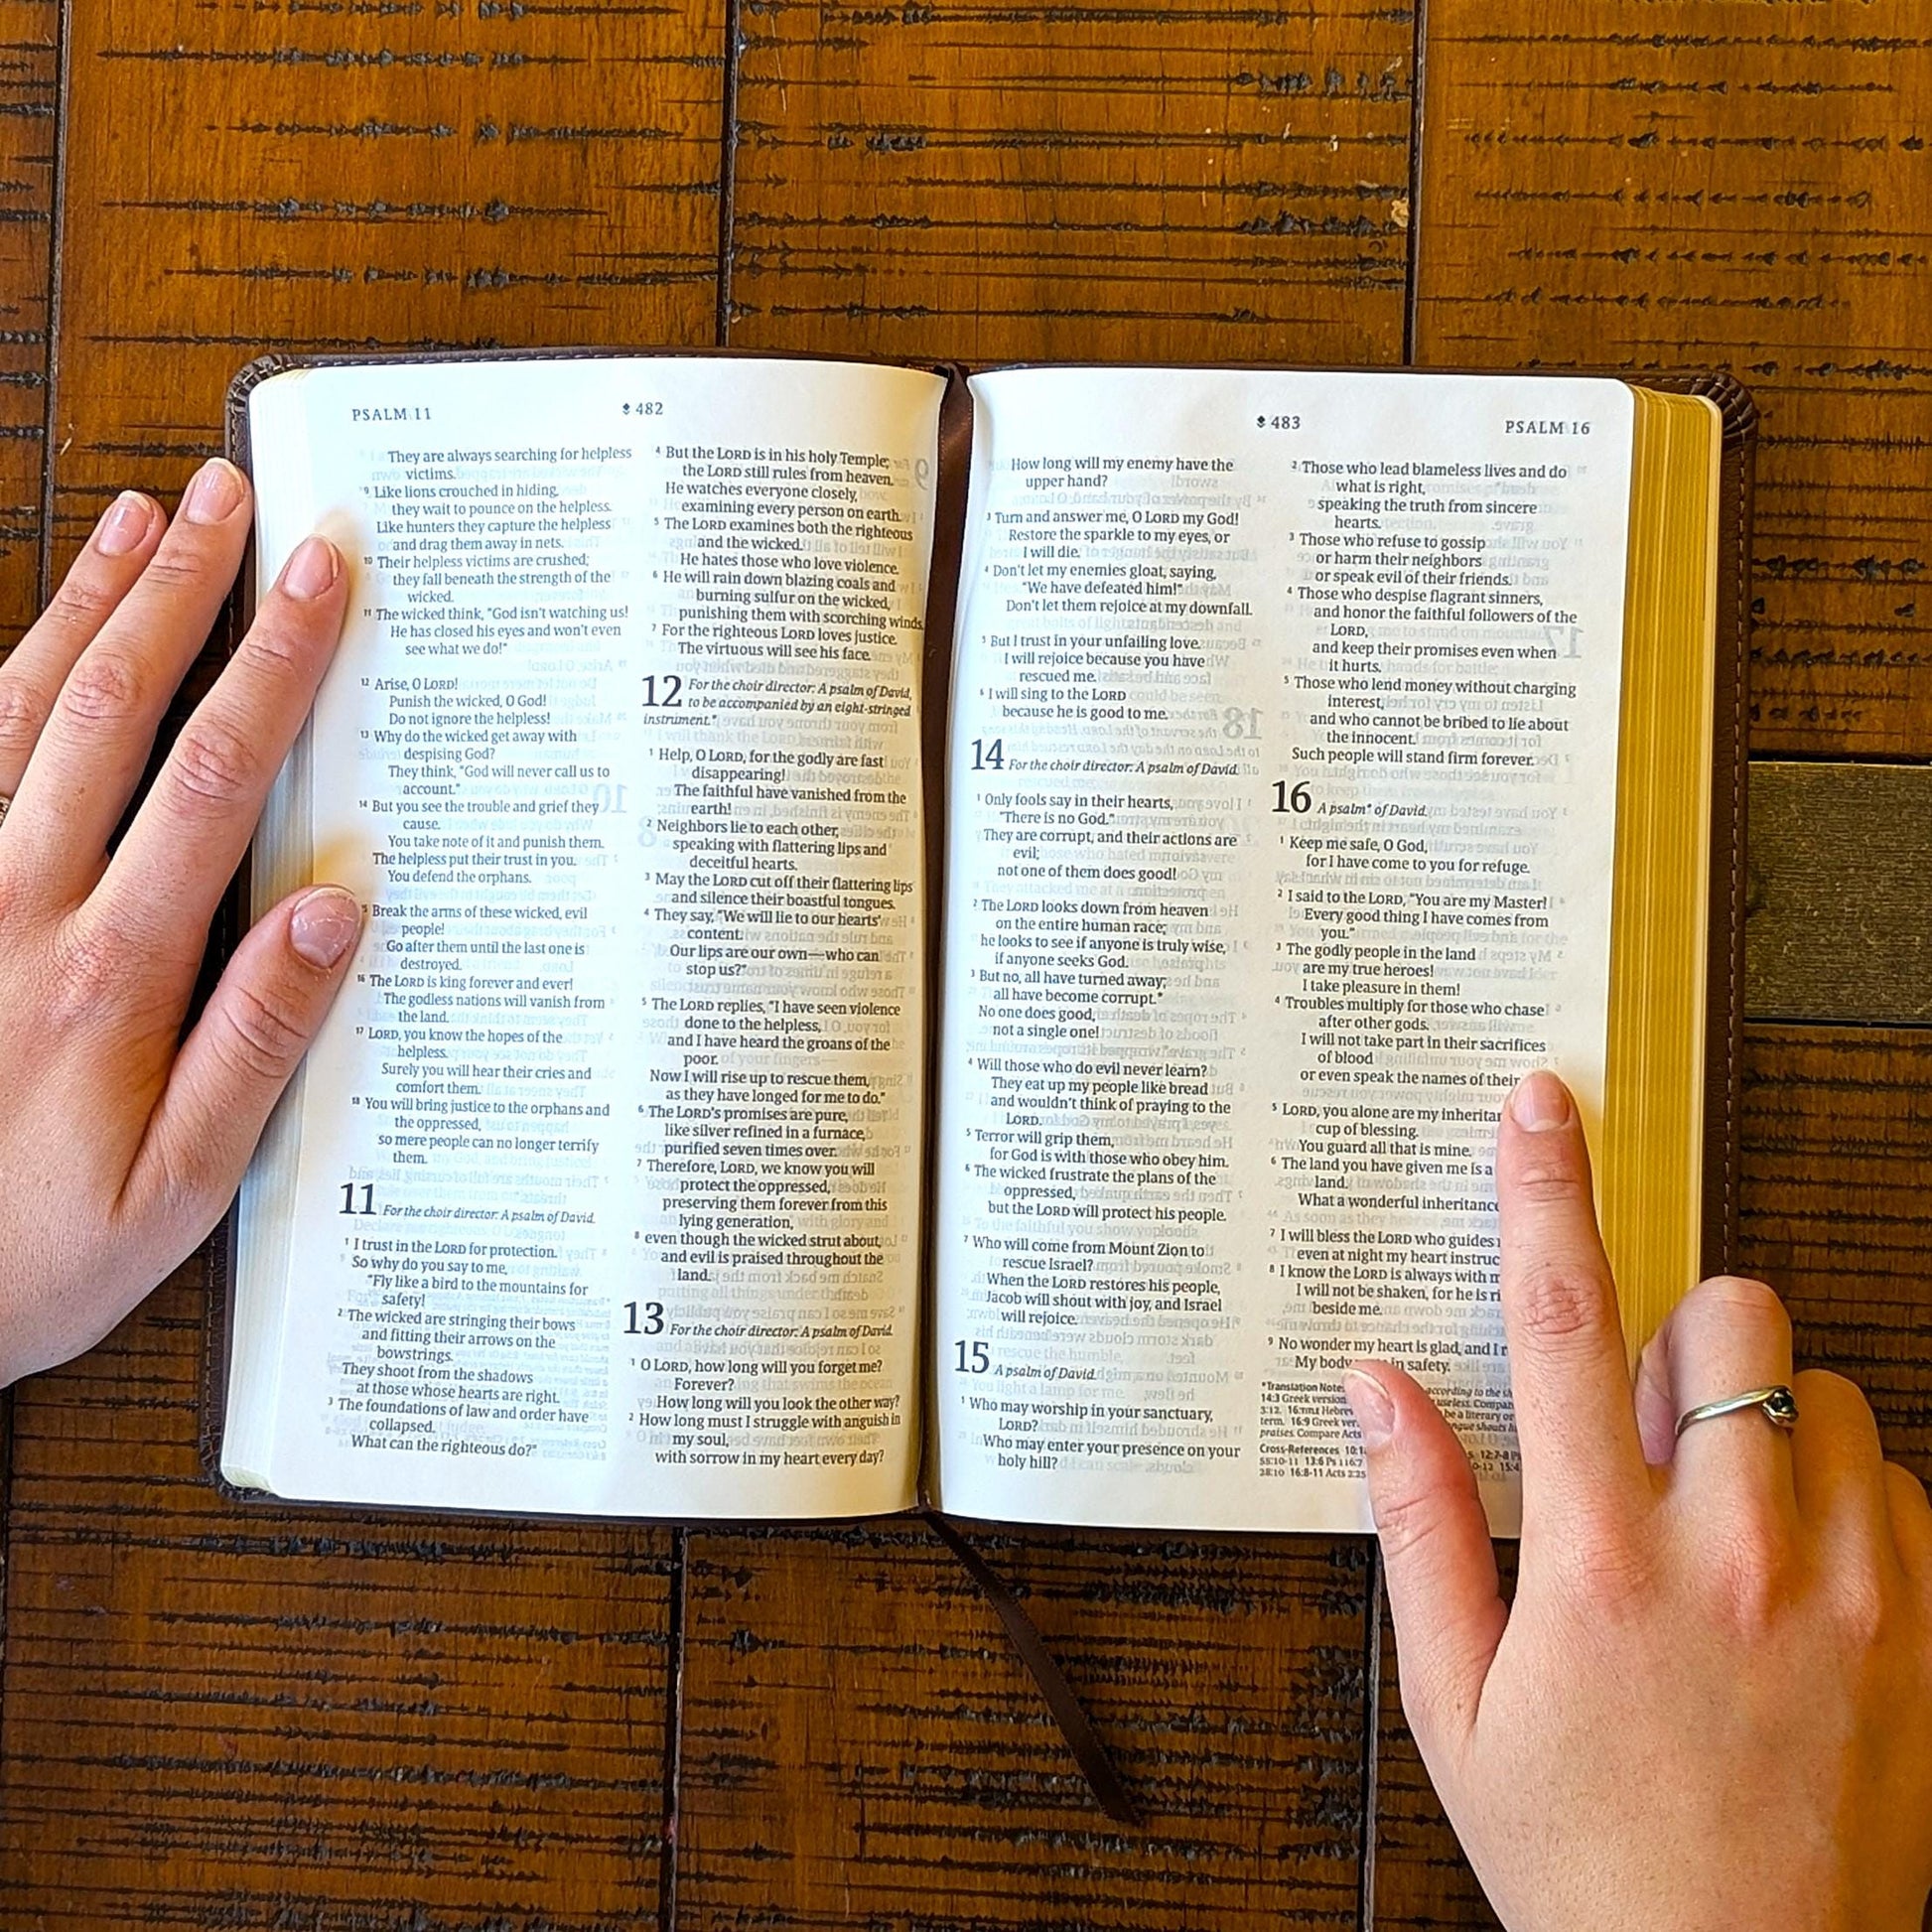 PSALM 11
482
They are always searching for helpless
victims.
9 Like lions crouched in hiding,
they wait to pounce on the helpless.
Like hunters they capture the helpless
and drag them away in nets.
10 Their helpless victims are crushed;
they fall beneath the strength of the
wicked.
11 The wicked think, "God isn't watching us!
He has closed his eyes and won't even
see what we do!"
12 Arise, O LORD!
Punish the wicked, O God!
Do not ignore the helpless!
13 Why do the wicked get away with
despising God?
They think, "God will never call us to
account."
14 But you see the trouble and grief they
cause.
You take note of it and punish them.
The helpless put their trust in you.
You defend the orphans.
Break the arms of these wicked, evil
people!
Go after them until the last one is
destroyed.
16 The LORD is king forever and ever!
The godless nations will vanish from
the land.
17 LORD, you know the hopes of the
helpless.
Surely you will hear their cries and
comfort them.
18 You will bring justice to the orphans and
the oppressed,
so mere people can no longer terrify
them.
11 For the choir director: A psalm of David.
1 I trust in the LORD for protection.
So why do you say to me,
"Fly like a bird to the mountains for
safety!
2 The wicked are stringing their bows
and fitting their arrows on the
bowstrings.
They shoot from the shadows
at those whose hearts are right.
3 The foundations of law and order have
collapsed.
What can the righteous do?"
4 But the LORD is in his holy Temple;
the LORD still rules from heaven.
He watches everyone closely,
examining every person on earth.
5 The LORD examines both the righteous
and the wicked.
He hates those who love violence.
6 He will rain down blazing coals and
burning sulfur on the wicked,
punishing them with scorching winds.
7 For the righteous LORD loves justice.
The virtuous will see his face.
12 For the choir director: A psalm of David,
to be accompanied by an eight-stringed
instrument.*
1 Help, O LORD, for the godly are fast
disappearing!
The faithful have vanished from the
earth!
2 Neighbors lie to each other,
speaking with flattering lips and
deceitful hearts.
3 May the LORD cut off their flattering lips
and silence their boastful tongues.
4 They say, "We will lie to our hearts'
content.
Our lips are our own—who can
stop us?"
5 The LORD replies, "I have seen violence
done to the helpless,
and I have heard the groans of the
poor.
Now I will rise up to rescue them,
as they have longed for me to do."
6 The LORD's promises are pure,
like silver refined in a furnace,
purified seven times over.
7 Therefore, LORD, we know you will
protect the oppressed,
preserving them forever from this
lying generation,
8 even though the wicked strut about,
and evil is praised throughout the
land.
13 For the choir director: A psalm of David.
1 O LORD, how long will you forget me?
Forever?
How long will you look the other way?
2 How long must I struggle with anguish in
my soul,
with sorrow in my heart every day?
483
PSALM 16
How long will my enemy have the
upper hand?
3 Turn and answer me, O LORD my God!
Restore the sparkle to my eyes, or
I will die.
4 Don't let my enemies gloat, saying,
"We have defeated him!"
Don't let them rejoice at my downfall.
5 But I trust in your unfailing love.
I will rejoice because you have
rescued me.
6 I will sing to the LORD
because he is good to me.
14 For the choir director: A psalm of David.
1 Only fools say in their hearts,
"There is no God."
They are corrupt, and their actions are
evil;
not one of them does good!
2 The LORD looks down from heaven
on the entire human race;
he looks to see if anyone is truly wise,
if anyone seeks God.
3 But no, all have turned away;
all have become corrupt.*
No one does good,
not a single one!
4 Will those who do evil never learn?
They eat up my people like bread
and wouldn't think of praying to the
LORD.
5 Terror will grip them,
for God is with those who obey him.
6 The wicked frustrate the plans of the
oppressed,
but the LORD will protect his people.
7 Who will come from Mount Zion to
rescue Israel?
When the LORD restores his people,
Jacob will shout with joy, and Israel
will rejoice.
15 A psalm of David.
1 Who may worship in your sanctuary,
LORD?
Who may enter your presence on your
holy hill?
2 Those who lead blameless lives and do
what is right,
speaking the truth from sincere
hearts.
3 Those who refuse to gossip
or harm their neighbors
or speak evil of their friends.
4 Those who despise flagrant sinners,
and honor the faithful followers of the
LORD,
and keep their promises even when
it hurts.
5 Those who lend money without charging
interest,
and who cannot be bribed to lie about
the innocent.
Such people will stand firm forever.
16 A psalm* of David.
1 Keep me safe, O God,
for I have come to you for refuge.
2 I said to the LORD, "You are my Master!
Every good thing I have comes from
you."
3 The godly people in the land
are my true heroes!
I take pleasure in them!
4 Troubles multiply for those who chase
after other gods.
I will not take part in their sacrifices
of blood
or even speak the names of their
5 LORD, you alone are my
cup of blessing.
You guard all that is mine.
6 The land you have given me is a
land.
What a wonderful inheritance
7 I will bless the LORD who guides
even at night my heart
8 I know the LORD is always with
I will not be shaken, for he is
beside me.
9 No wonder my heart is glad, and I
My body in safety.
*Translation Note: according to the
14:3 Greek version useless. Compare
3:12. Hebrew be a literary or
term. 16:9 Greek tongue shouts
praises. Compare Acts
Cross-References 12:7-8
55:10-11 13:6 Ps 116:7
28:10 16:8-11 Acts 2:25